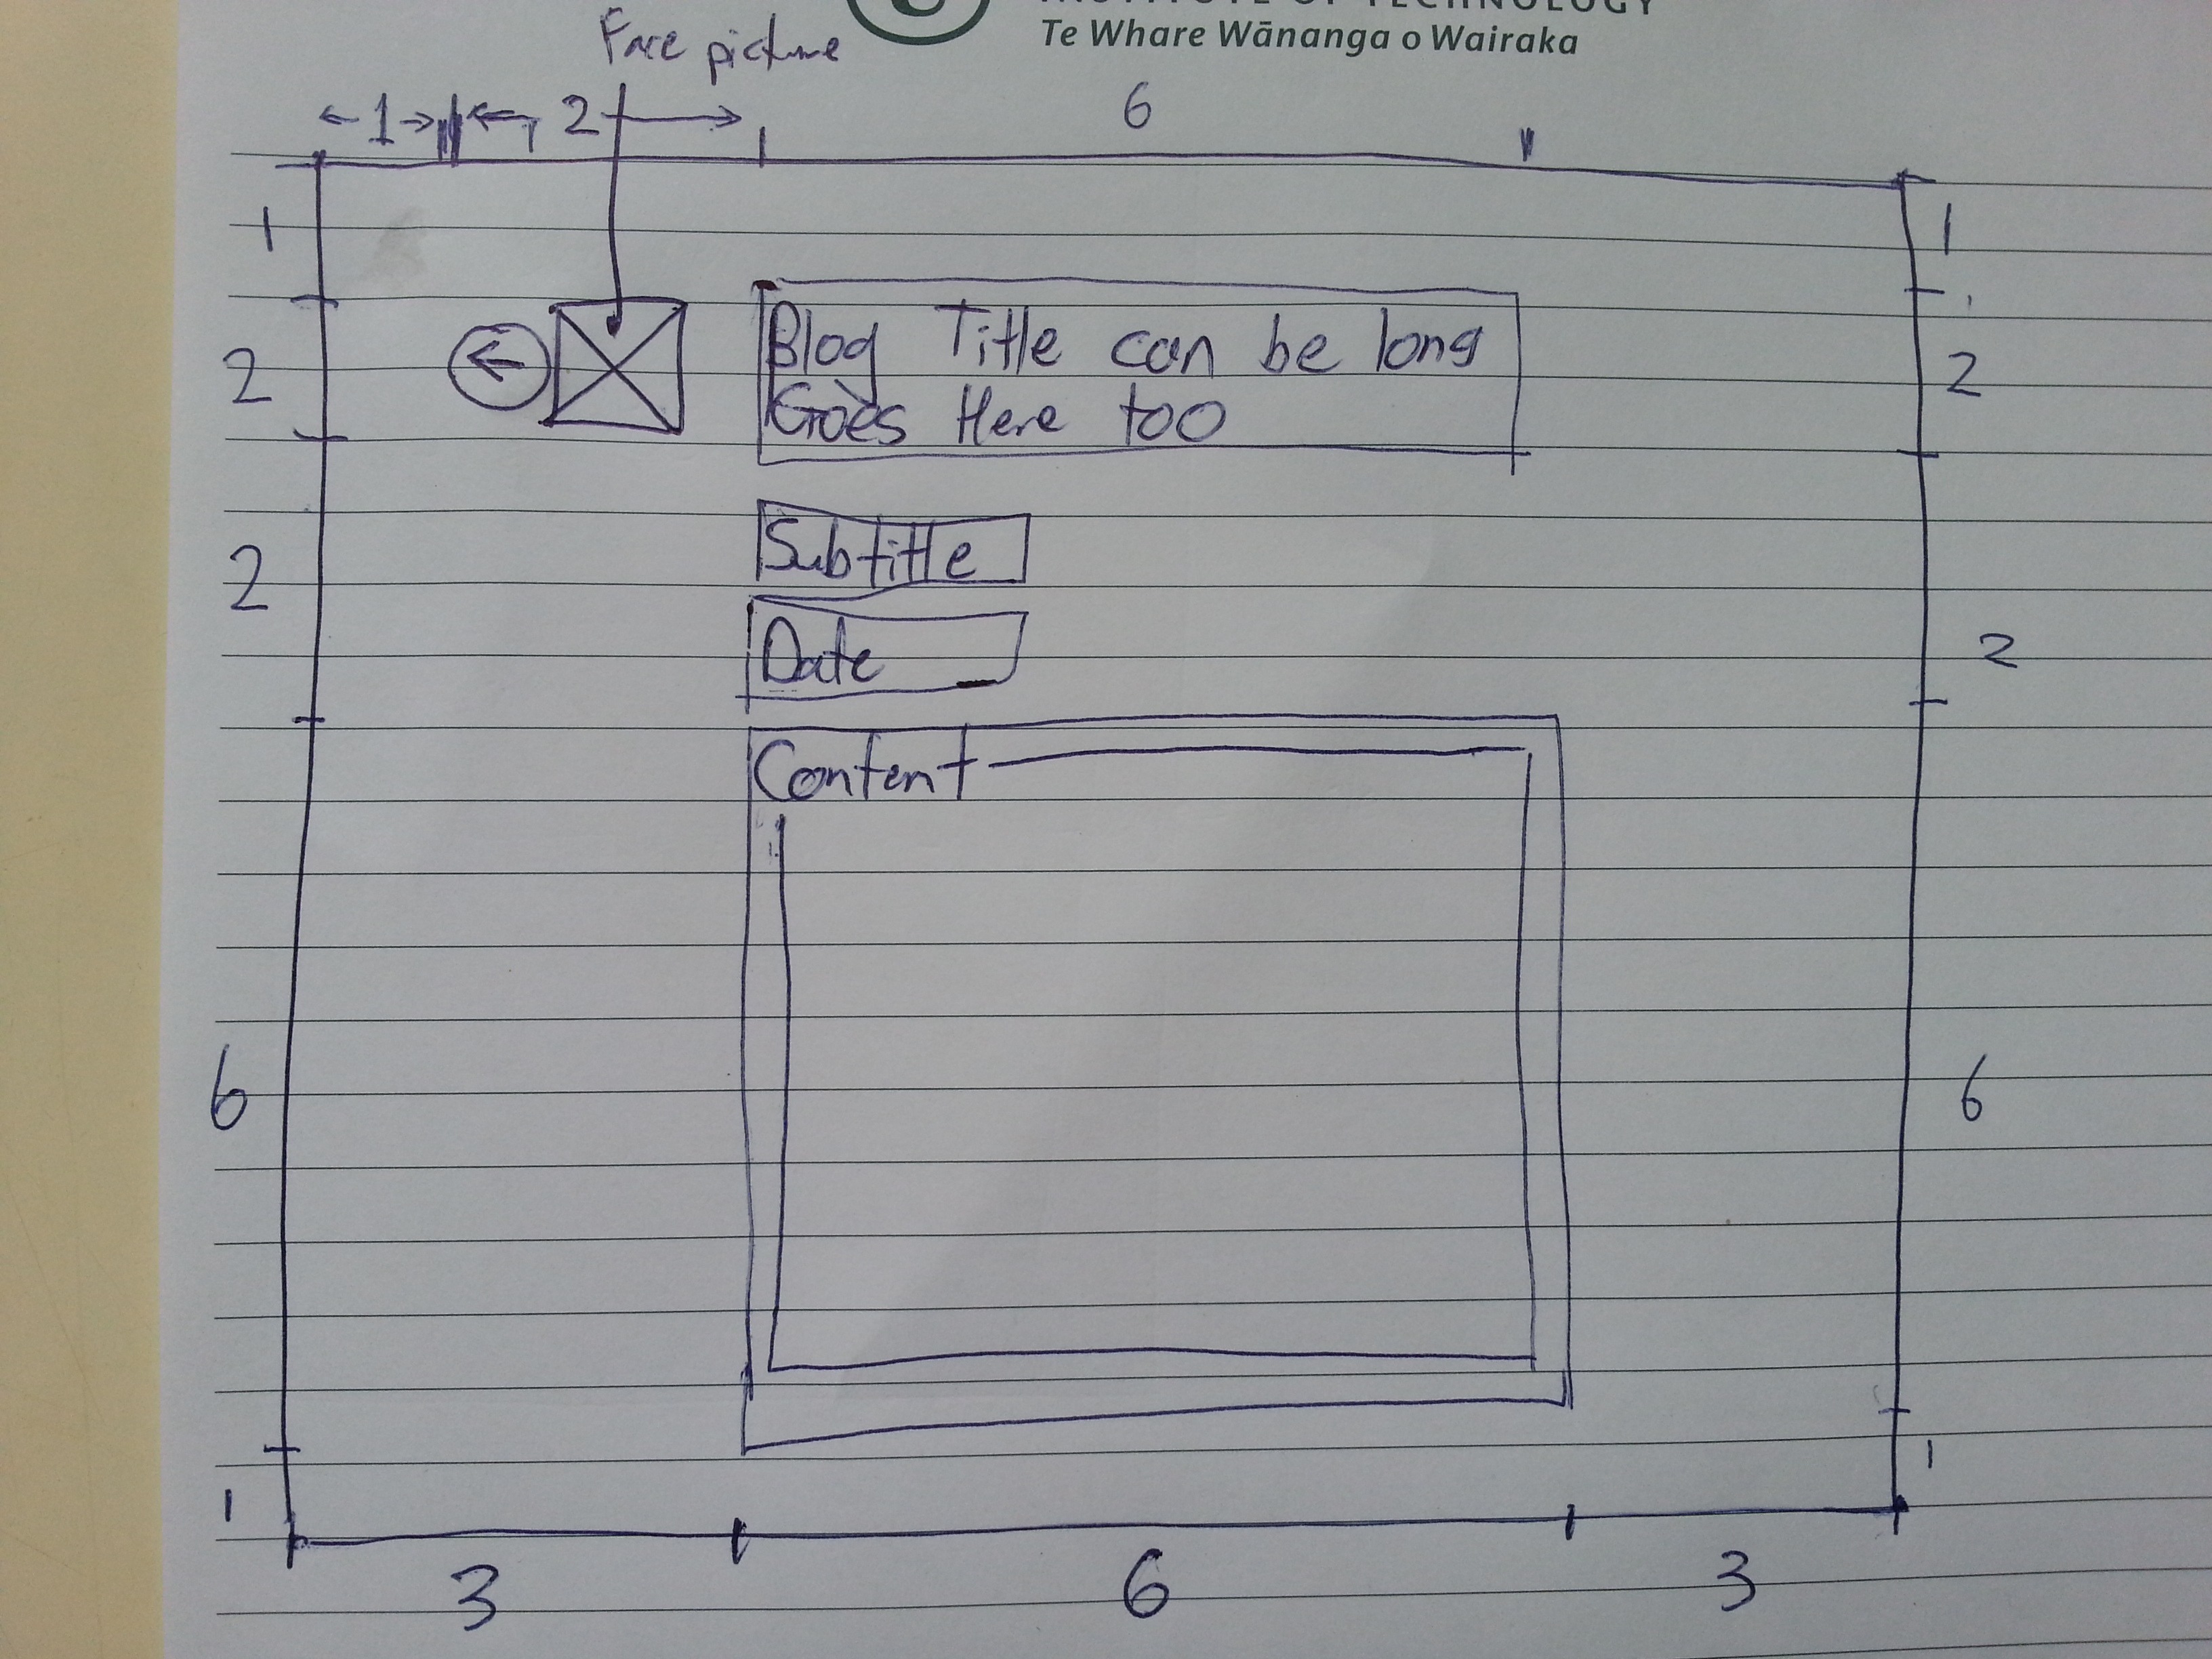 INSTITUTE OF TECHNOLOGY
Te Whare Wānanga o Wairaka
Face picture
1 2 6
1 1
Blog Title can be long
2 2
Goes Here too
Subtitle
2
Date 2
Content
6 6
1 1
3 6 3